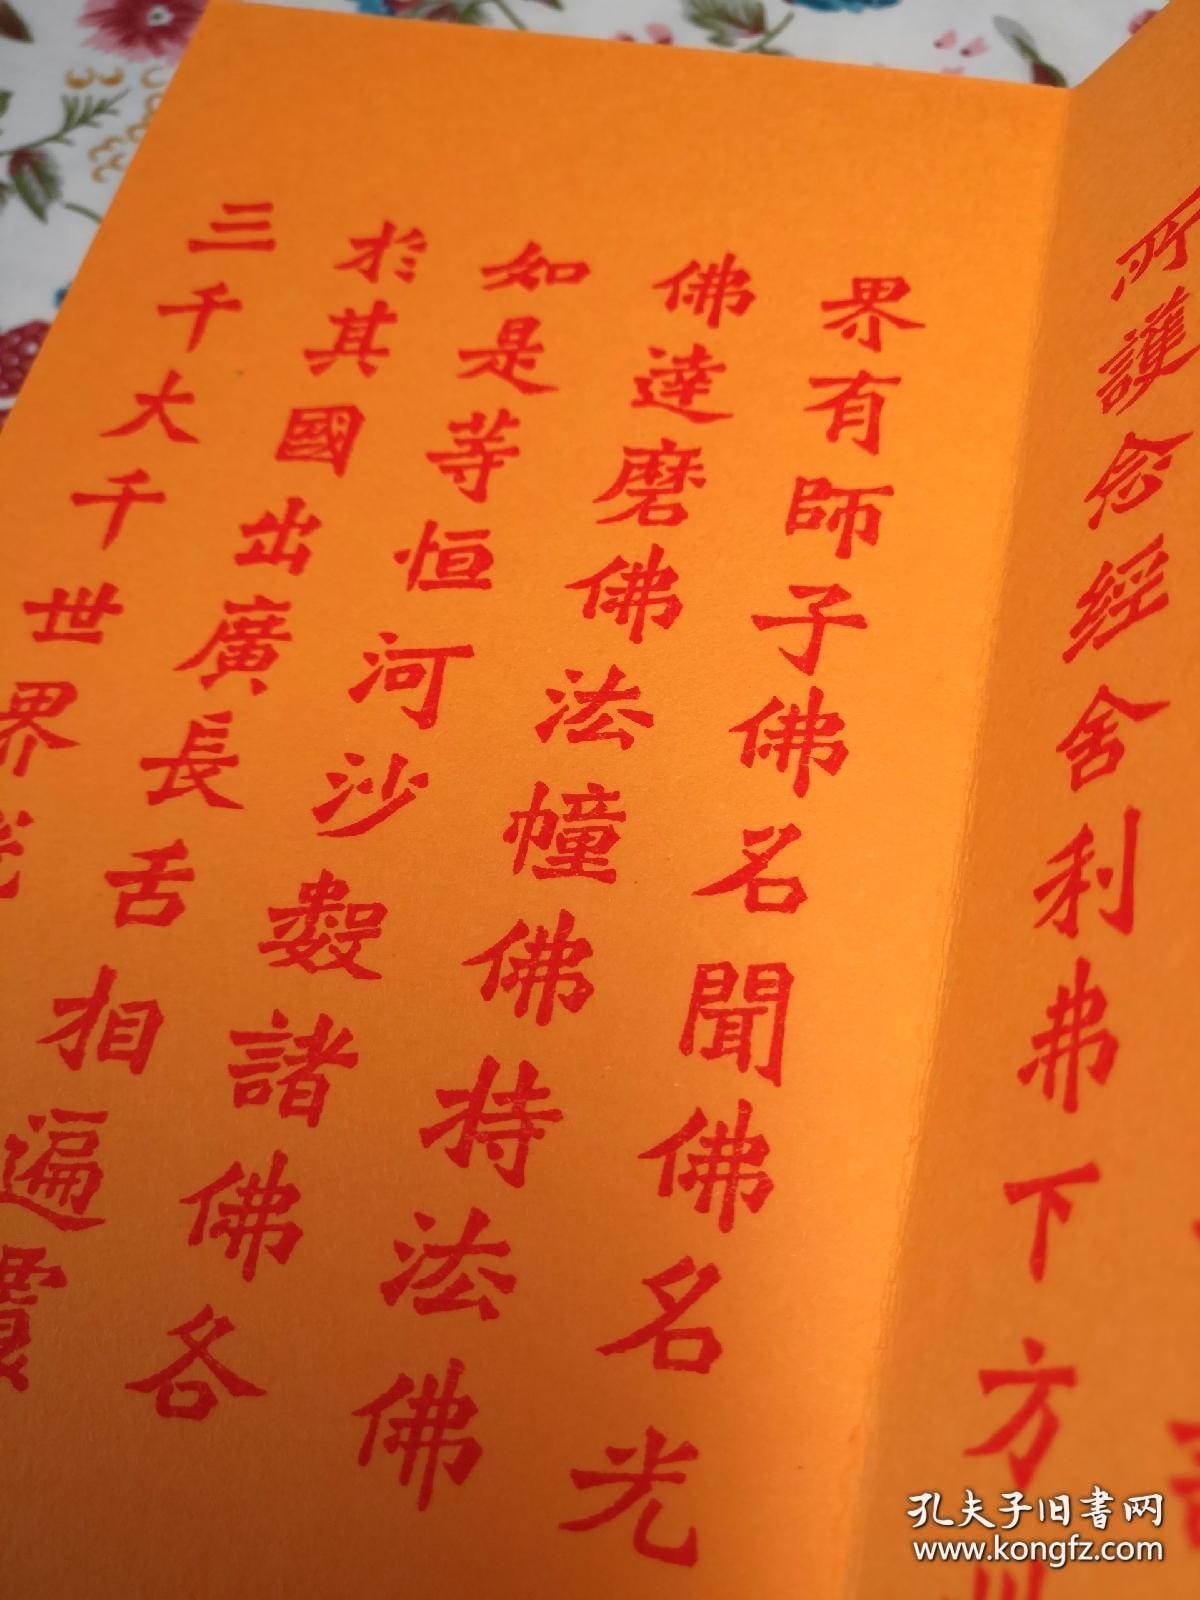 所護念經舍利弗下方世
界有師子佛名聞佛名光
佛達磨佛法幢佛持法佛
如是等恒河沙數諸佛各
於其國出廣長舌相遍覆
三千大千世界說
孔夫子旧书网
www.kongfz.com